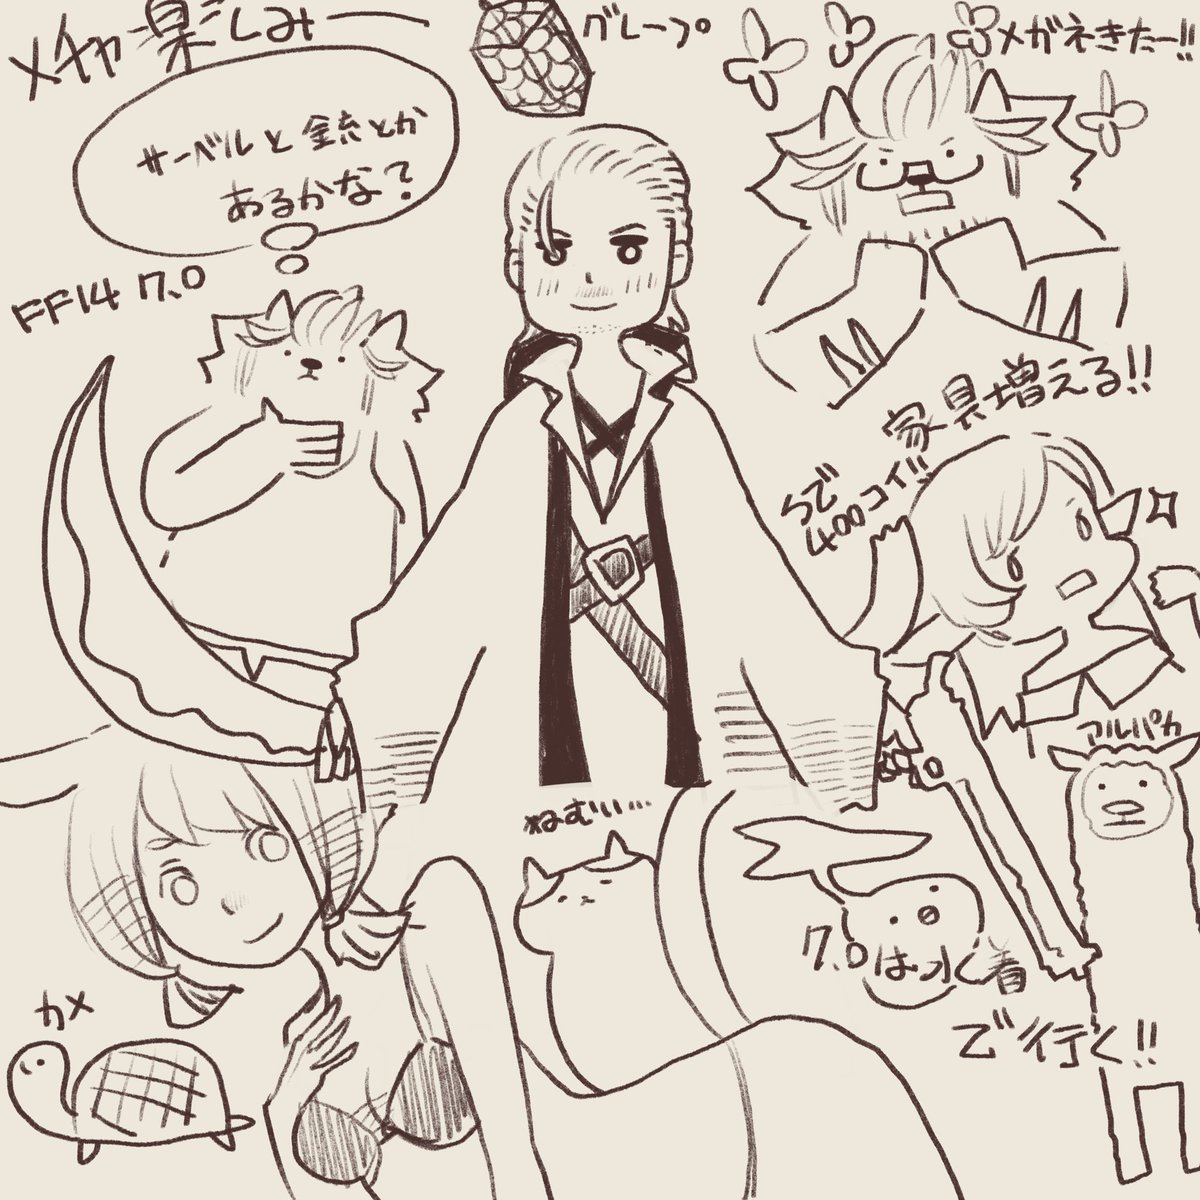 メチャ楽しみ──
グレープ
メガネきたー!!
サーベルと銃とか
あるかな?
FF14 7.0
家具増える!!
らで
400コイ!!
アルパカ
ねむい…
7.0は水着
で行く!!
カメ